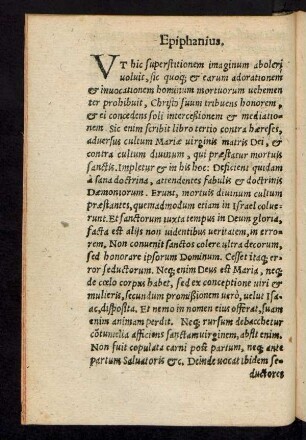 Epiphanius.
VT hic superstitionem imaginum aboleri
uoluit, sic quoq; & earum adorationem
& inuocationem hominum mortuorum uchemen
ter prohibuit, Christo suum tribuens honorem,
& ei concedens soli intercessionem & mediatio-
nem. Sic enim scribit libro tertio contra hæreses,
aduersus cultum Mariæ uirginis matris Dei, &
contra cultum diuinum, qui præstatur mortuis
sanctis. Impletur & in his hoc: Deficient quidam
à sana doctrina, attendentes fabulis & doctrinis
Dæmoniorum. Erunt, mortuis diuinum cultum
præstantes, quemadmodum etiam in Israel colue-
runt. Et sanctorum iuxta tempus in Deum gloria,
facta est alijs non uidentibus ueritatem, in erro-
rem. Non conuenit sanctos colere ultra decorum,
sed honorare ipsorum Dominum. Cesset itaq; er-
ror seductorum. Neq; enim Deus est Maria, neq;
de cœlo corpus habet, sed ex conceptione uiri &
mulieris, secundum promißionem uerò, uelut Isa-
ac, disposita. Et nemo in nomen eius offerat, suam
enim animam perdit. Neq; rursum debacchetur
cōtumelia afficiens sanctam uirginem, absit enim.
Non fuit copulata carni post partum, neq; ante
partum Saluatoris &c. Deinde uocat ibidem se-
ductores